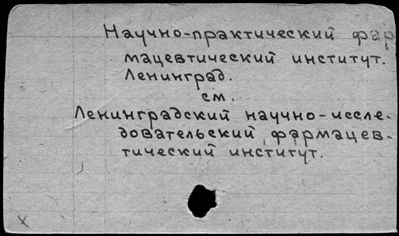 Научно-практический фар
мацевтический институт.
Ленинград.
см.
Ленинградский научно-иссле-
довательский фармацев-
тический институт.
x